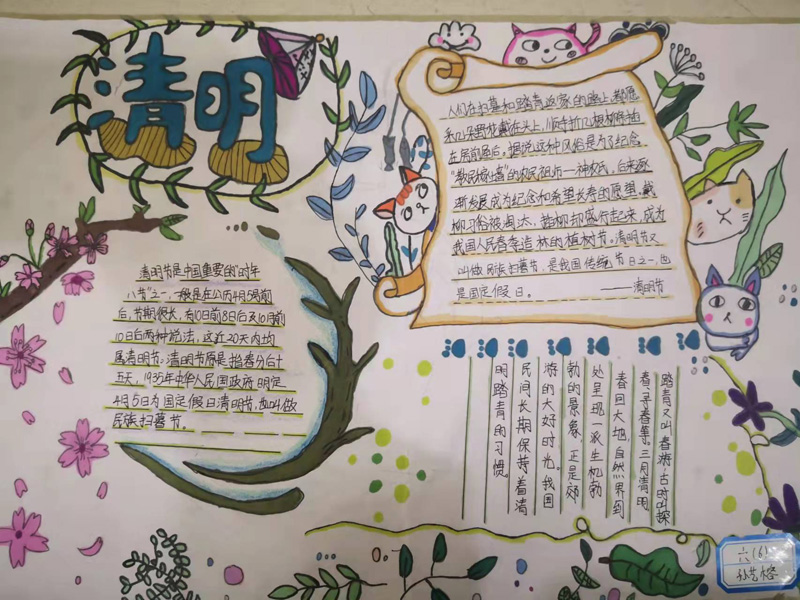 清明
人们在扫墓和踏青返家的路上,都愿
采几朵野花戴在头上,顺手折几根柳条插
在房前屋后。据说这种风俗是为了纪念
"教民稼穑"的农民祖师——神农氏,后来逐
渐发展成为纪念和希望长寿的愿望,戴
柳习俗被淘汰,插柳却盛行起来,成为
我国人民春季造林的植树节。清明节又
叫做民族扫墓节,是我国传统节日之一,也
是国定假日。 ——清明节
清明节是中国重要的"时年
八节"之一,一般是在公历4月5号前
后,节期很长,有10日前8日后及10日前
10日后两种说法,这近20天内均
属清明节。清明节原是指春分后十
五天,1935年中华人民国政府明定
4月5日为国定假日清明节,也叫做
民族扫墓节。
踏青又叫春游,古时叫探
春、寻春等。三月清明
春回大地,自然界到
处呈现一派生机勃
勃的景象,正是郊
游的大好时光。我国
民间长期保持着清
明踏青的习惯。
六(6)
孙艺榕